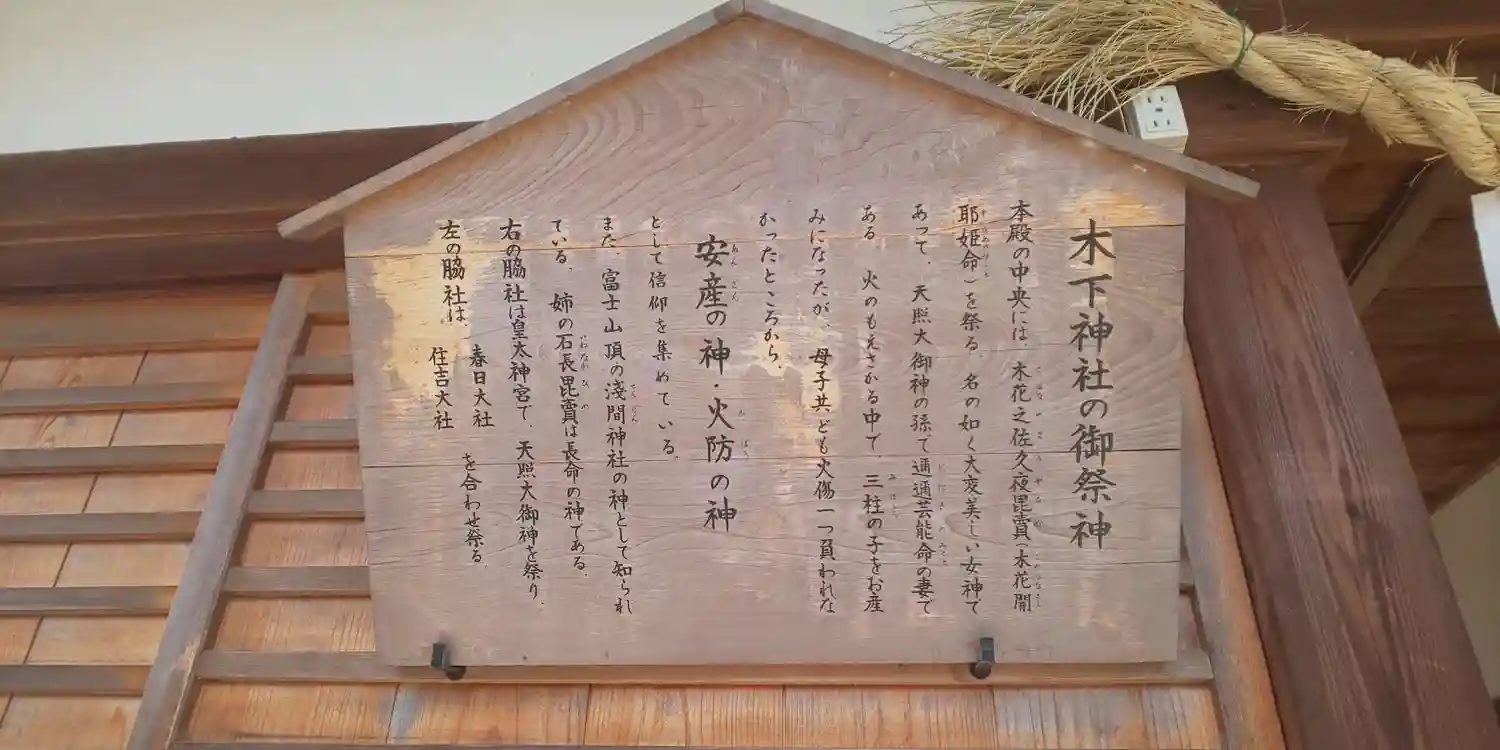 木下神社の御祭神
本殿の中央には、木花之佐久夜毘賣（木花開
耶姫命）を祭る。名の如く大変美しい女神で
あって、天照大御神の孫で邇邇芸能命の妻で
ある。火のもえさかる中で三柱の子をお産
みになったが、母子共ども火傷一つ負われな
かったところから、
安産の神・火防の神
として信仰を集めている。
また、富士山頂の淺間神社の神として知られ
ている。姉の石長毘賣は長命の神である。
右の脇社は皇太神宮で、天照大御神を祭り、
左の脇社は、春日大社
住吉大社
を合わせ祭る。